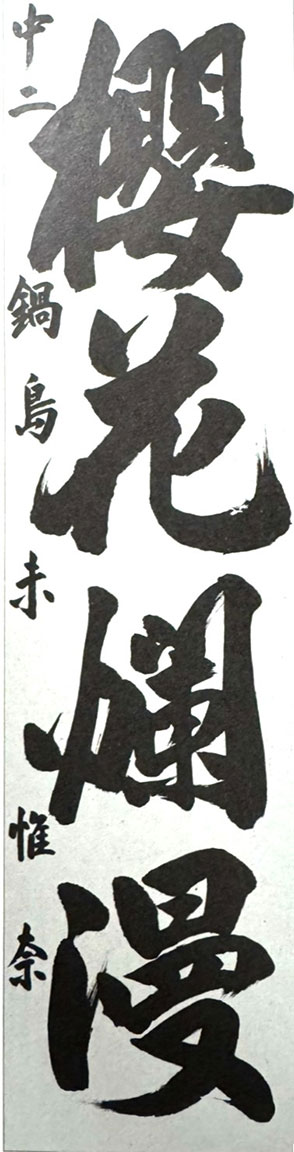 櫻花爛漫
中二 鍋島未惟奈